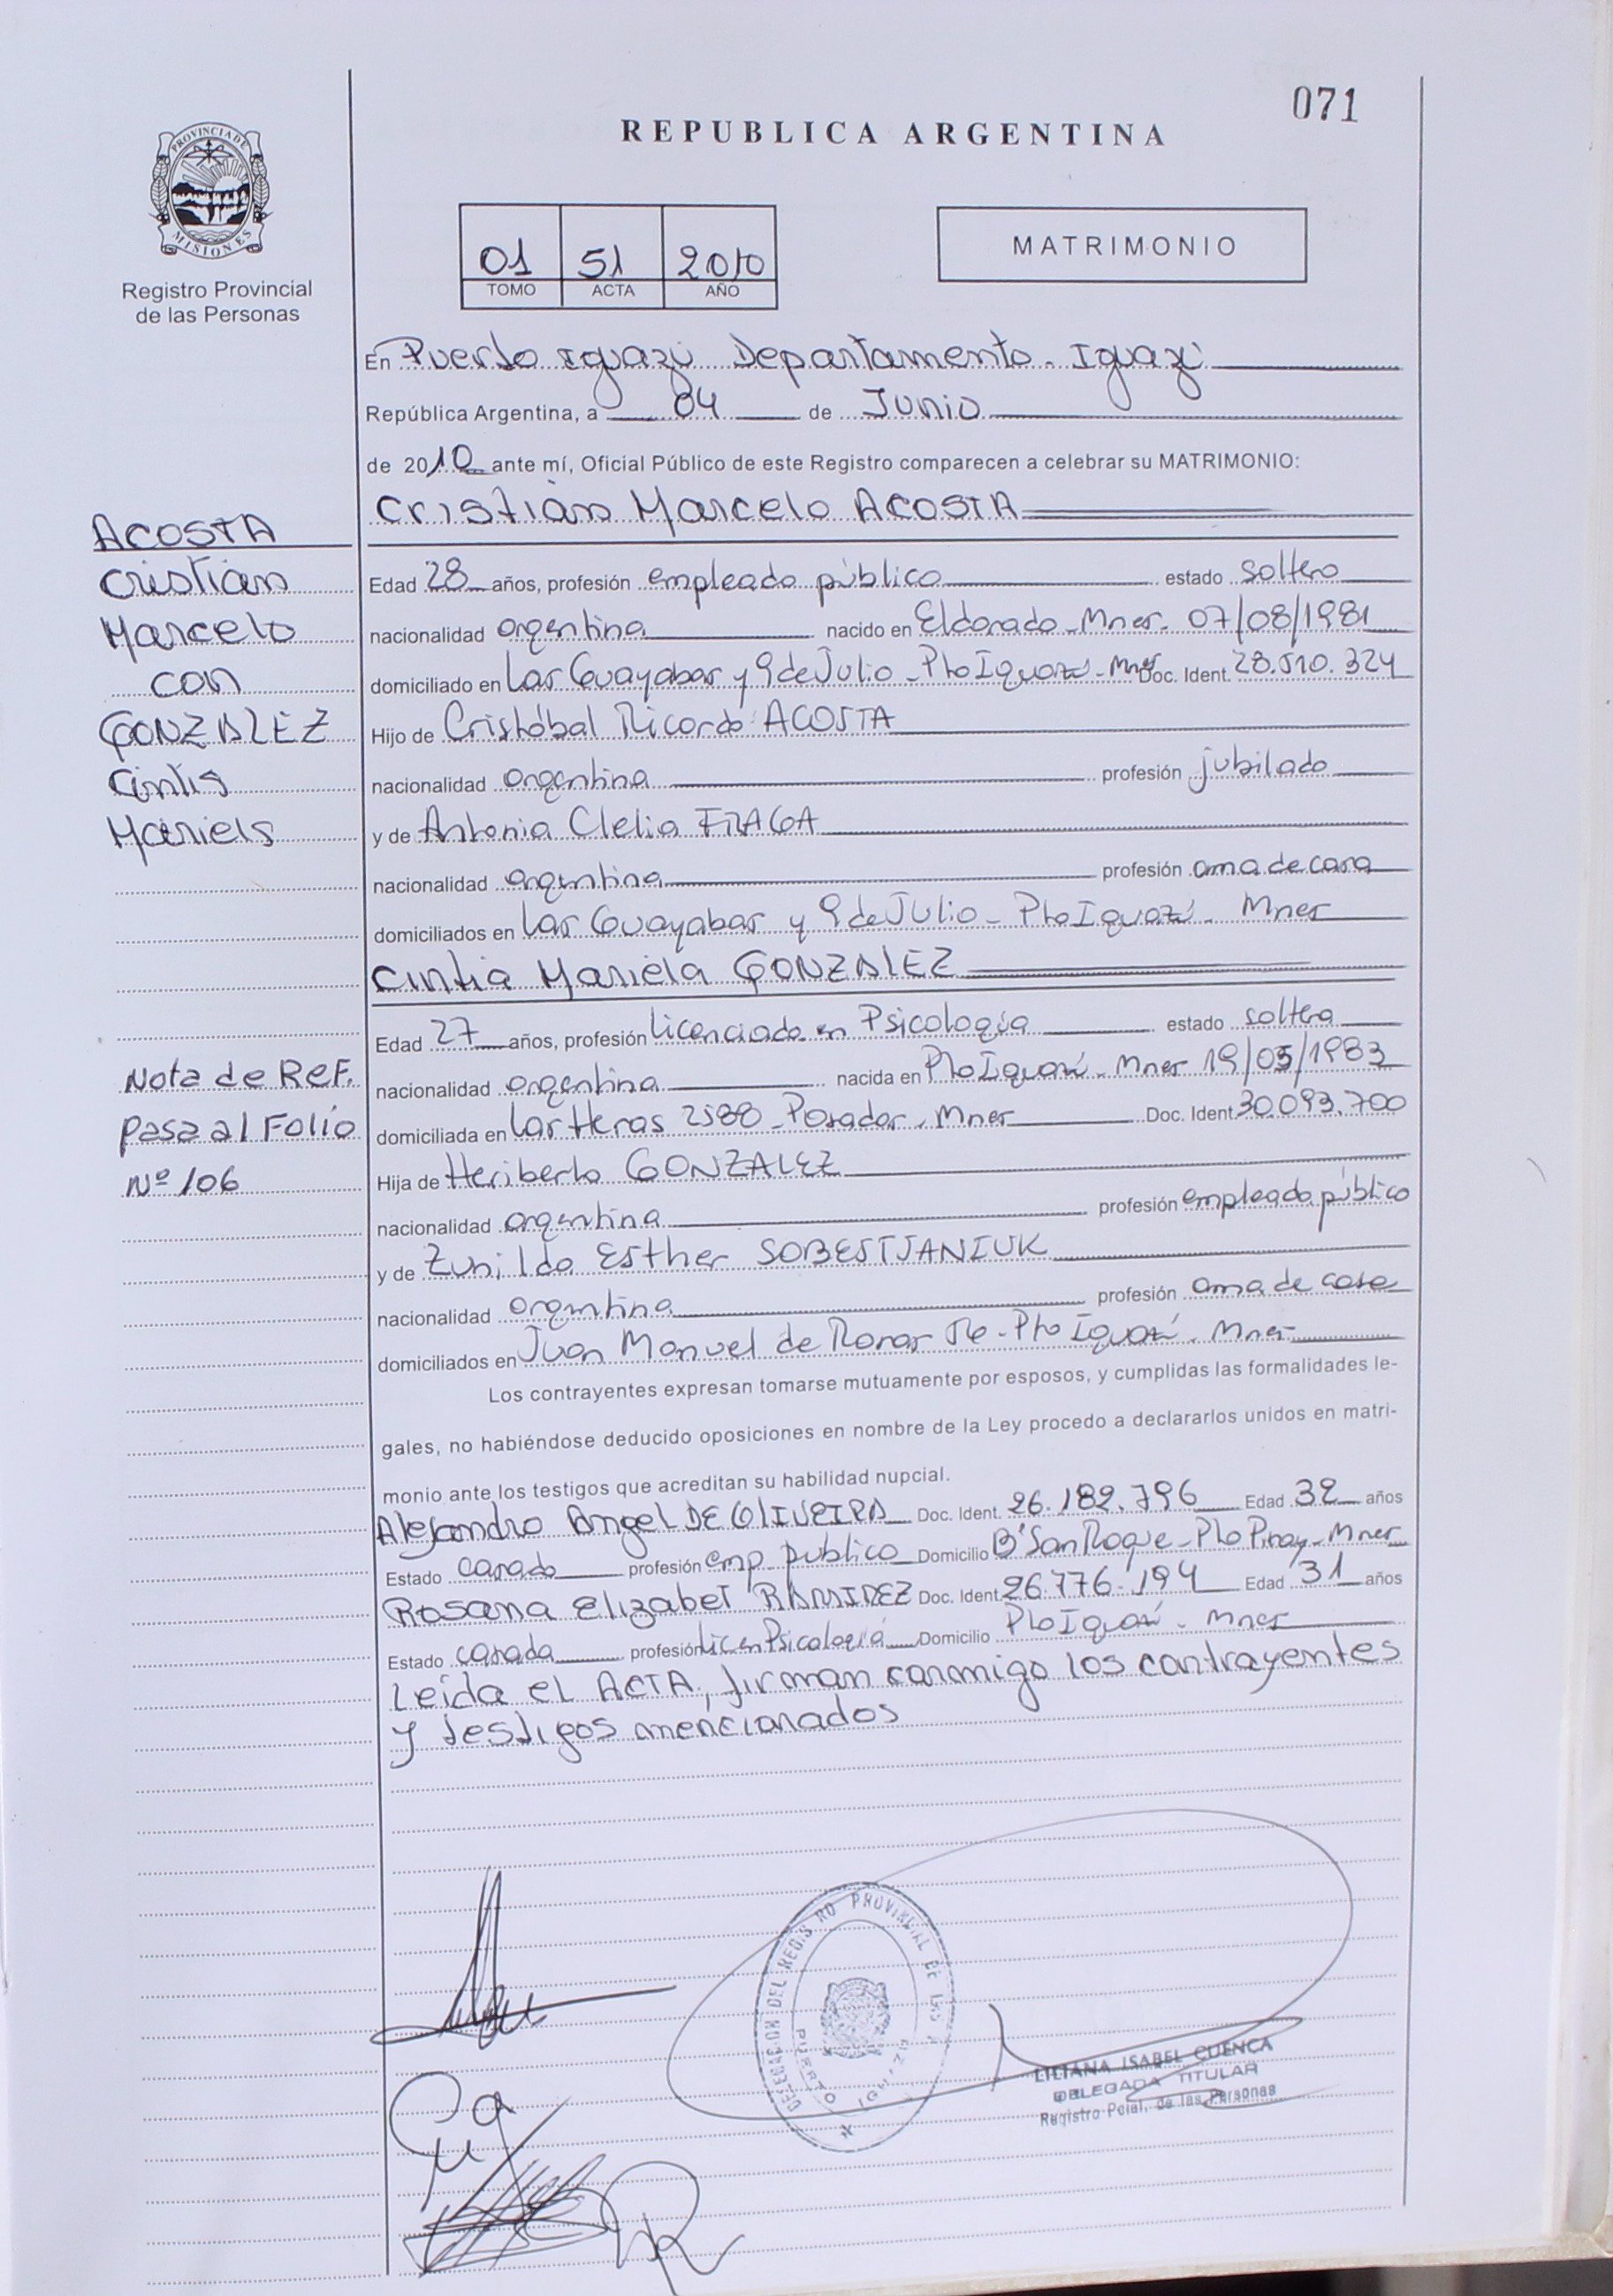 071
REPUBLICA ARGENTINA
PROVINCIA DE
MISIONES
Registro Provincial
de las Personas
01 51 2010
TOMO ACTA AÑO
MATRIMONIO
En Puerto Iguazú Departamento - Iguazú
República Argentina, a 04 de Junio
de 2010 ante mí, Oficial Público de este Registro comparecen a celebrar su MATRIMONIO:
Cristian Marcelo ACOSTA
Edad 28 años, profesión empleado público estado soltero
nacionalidad argentina nacido en Eldorado - Mnes. 07/08/1981
domiciliado en Las Guayabas y 9 de Julio - Pto Iguazú - Mnes Doc. Ident. 28.510.324
Hijo de Cristóbal Ricardo ACOSTA
nacionalidad argentina profesión jubilado
y de Antonia Clelia FRAGA
nacionalidad argentina profesión ama de casa
domiciliados en Las Guayabas y 9 de Julio - Pto Iguazú - Mnes
Cintia Mariela GONZALEZ
Edad 27 años, profesión licenciada en Psicología estado soltera
nacionalidad argentina nacida en Pto Iguazú - Mnes 19/05/1983
domiciliada en Las Heras 2588 - Posadas - Mnes Doc. Ident. 30.093.700
Hija de Heriberto GONZALEZ
nacionalidad argentina profesión empleado público
y de Zunilda Esther SOBESTJANIUK
nacionalidad argentina profesión ama de casa
domiciliados en Juan Manuel de Rosas - Pto Iguazú - Mnes
Los contrayentes expresan tomarse mutuamente por esposos, y cumplidas las formalidades le-
gales, no habiéndose deducido oposiciones en nombre de la Ley procedo a declararlos unidos en matri-
monio ante los testigos que acreditan su habilidad nupcial.
Alejandro Angel DE OLIVEIRA Doc. Ident. 26.182.796 Edad 32 años
Estado casado profesión emp. publico Domicilio B° San Roque - Pto Piray - Mnes
Rosana Elizabet RAMIREZ Doc. Ident. 26.776.194 Edad 31 años
Estado casada profesión Lic en Psicología Domicilio Pto Iguazú - Mnes
Leída el ACTA, firman conmigo los contrayentes
y testigos mencionados
ACOSTA
Cristian
Marcelo
con
GONZALEZ
Cintia
Mariela
Nota de Ref.
Pasa al Folio
Nº 106
DELEGACION DEL REGISTRO PROVINCIAL DE LAS P
PUERTO IGUAZU
LILIANA ISABEL CUENCA
DELEGADA TITULAR
Registro Pcial. de las Personas